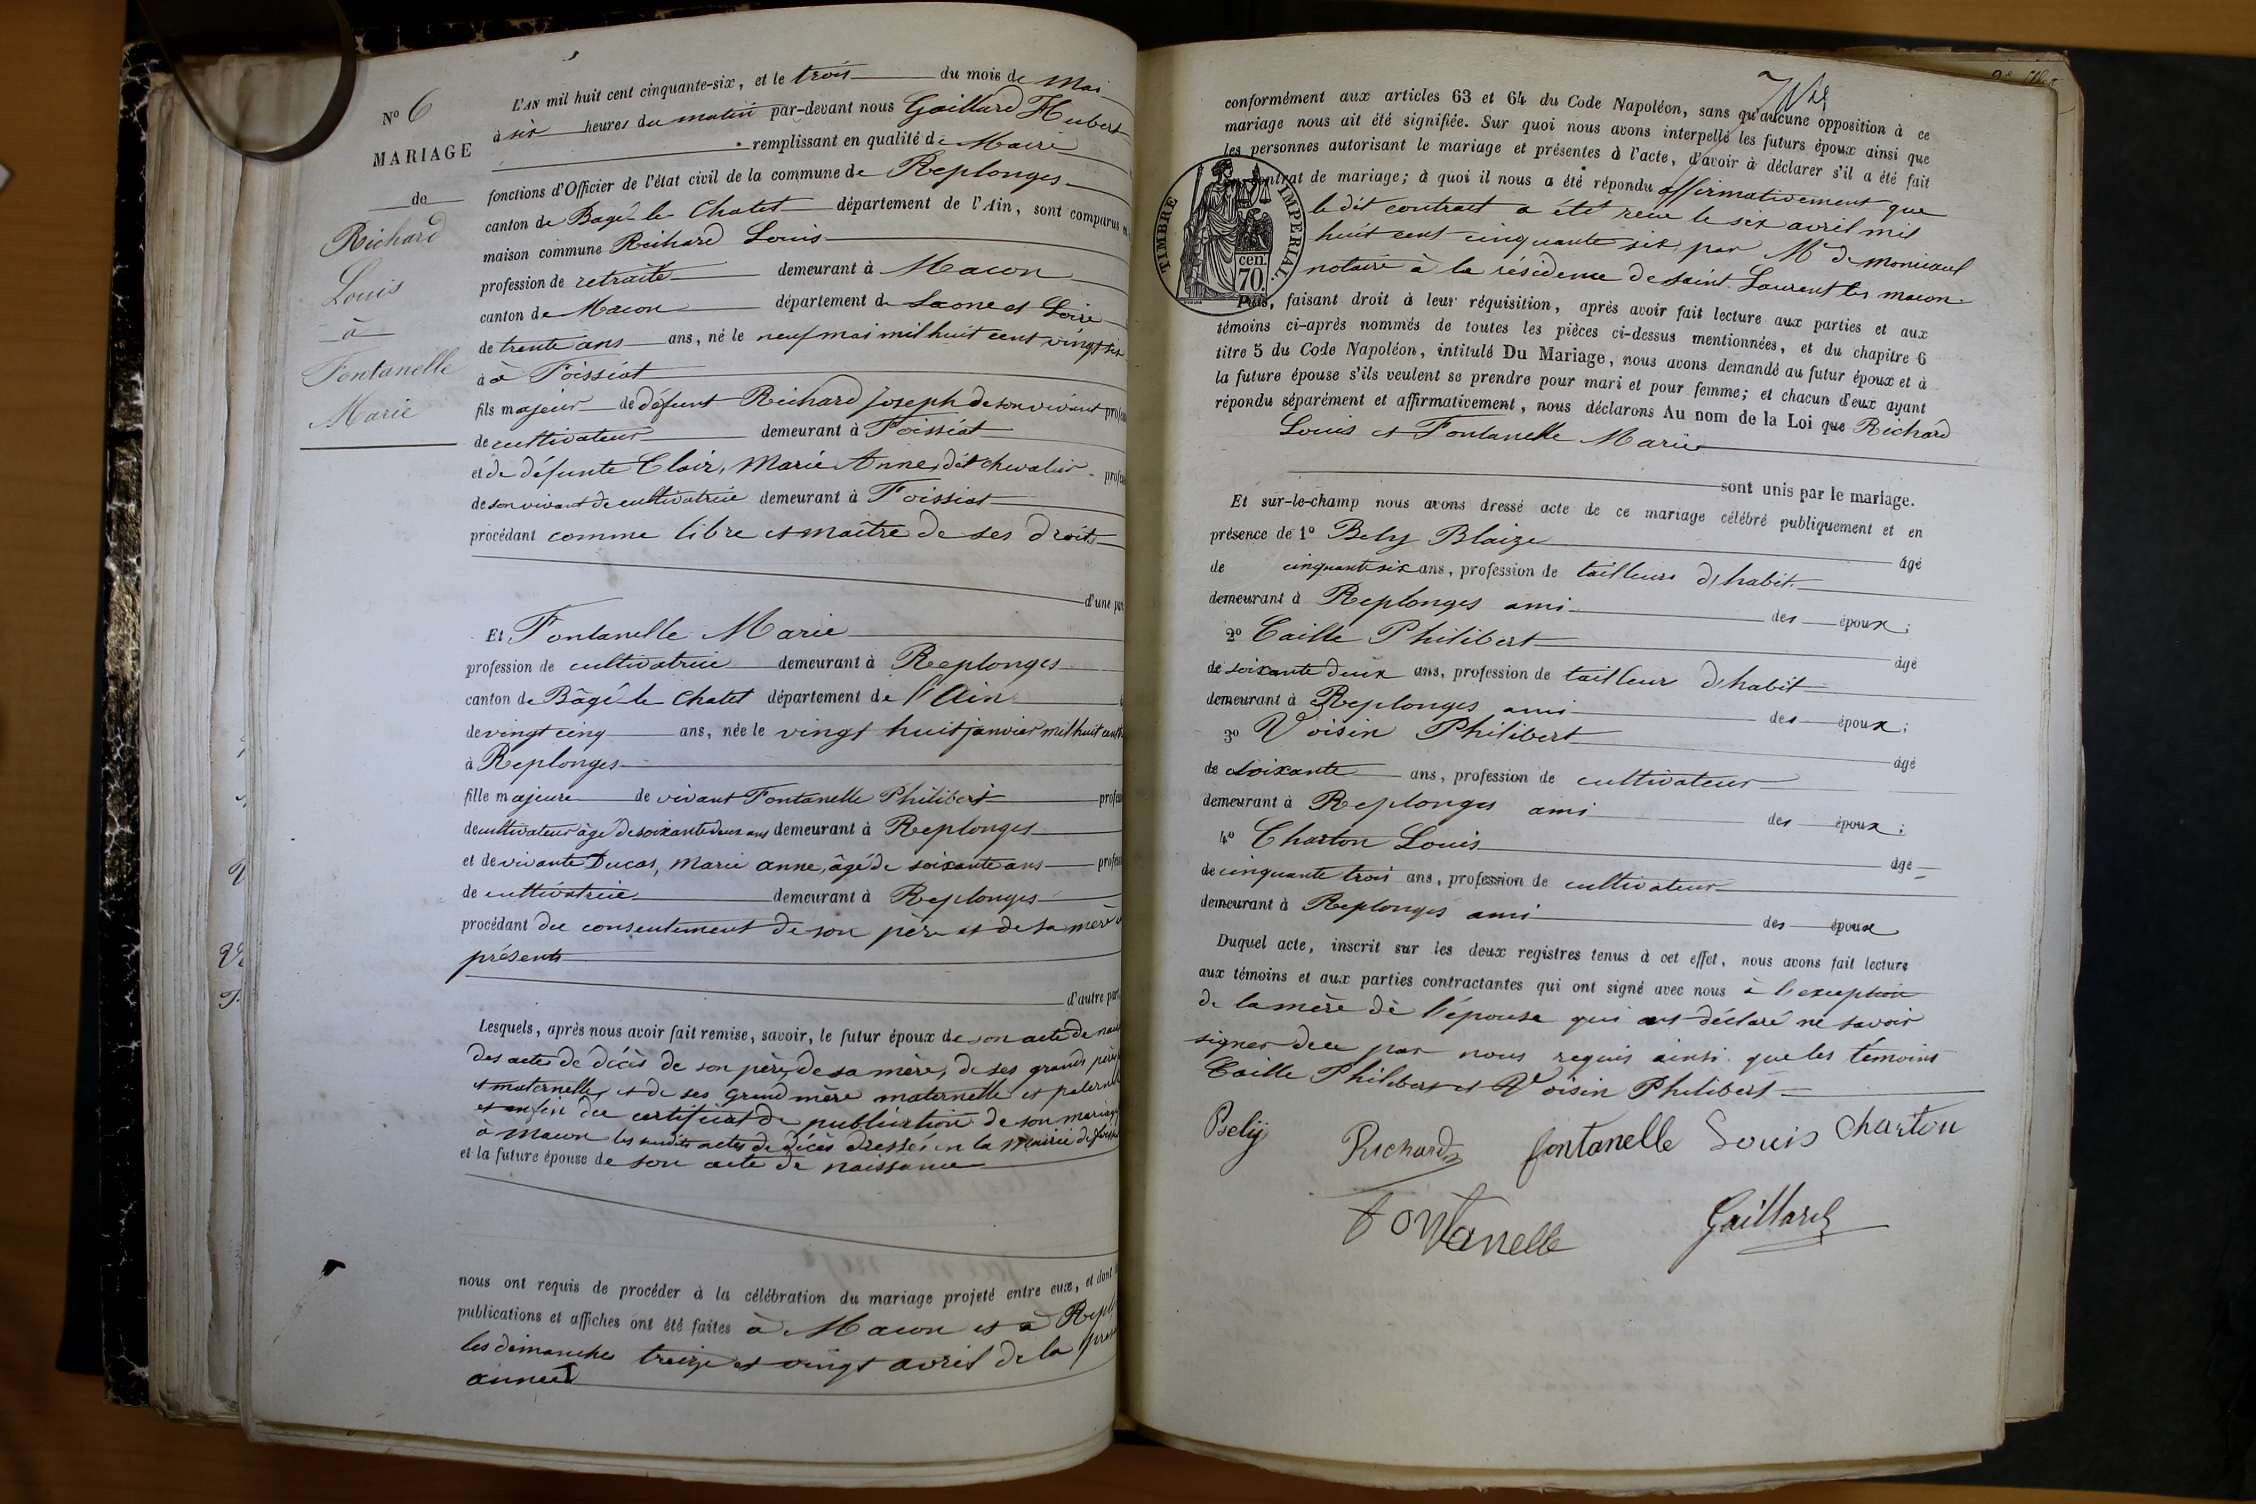 N° 6
MARIAGE
de
Richard
Louis
à
Fontanelle
Marie
L'AN mil huit cent cinquante-six, et le trois du mois de Mai
à six heures du matin par-devant nous Gaillard Hubert
remplissant en qualité de Maire
fonctions d'Officier de l'état civil de la commune de Replonges
canton de Bagé-le Chatel département de l'Ain, sont comparus en
maison commune Richard Louis
profession de retraité demeurant à Macon
canton de Macon département de Saone et Loire
de trente ans ans, né le neuf mai mil huit cent vingt six
à à Foissiat
fils majeur de défunt Richard Joseph de son vivant profes
de cultivateur demeurant à Foissiat
et de défunte Clair, Marie Anne, dit chevalier profes
de son vivant de cultivatrice demeurant à Foissiat
procédant comme libre et maître de ses droits
d'une part
Et Fontanelle Marie
profession de cultivatrice demeurant à Replonges
canton de Bâgé-le Chatel département de l'Ain
de vingt cinq ans, née le vingt huit janvier mil huit cent
à Replonges
fille majeure de vivant Fontanelle Philibert profes
de cultivateur âgé de soixante deux ans demeurant à Replonges
et de vivante Ducas, Marie anne, âgé de soixante ans profes
de cultivatrice demeurant à Replonges
procédant du consentement de son père et de sa mère
présents
d'autre part
Lesquels, après nous avoir fait remise, savoir, le futur époux de son acte de nais
des actes de décès de son père, de sa mère, de ses grands pères
et maternelle, et de ses grand mère maternelle et paternelle
et enfin du certificat de publication de son mariage
à Macon les susdits actes de décès dressés en la Mairie de foissiat
et la future épouse de son acte de naissance
nous ont requis de procéder à la célébration du mariage projeté entre eux, et dont
publications et affiches ont été faites à Macon et à Repl
les dimanches treize et vingt avril de la
année
conformément aux articles 63 et 64 du Code Napoléon, sans qu'aucune opposition à ce
mariage nous ait été signifiée. Sur quoi nous avons interpellé les futurs époux ainsi que
les personnes autorisant le mariage et présentes à l'acte, d'avoir à déclarer s'il a été fait
contrat de mariage; à quoi il nous a été répondu affirmativement que
le dit contrat a été reçu le six avril mil
huit cent cinquante six par Me de
notaire à la résidence de saint Laurent les macon
TIMBRE IMPERIAL.
cen.
70.
Puis, faisant droit à leur réquisition, après avoir fait lecture aux parties et aux
témoins ci-après nommés de toutes les pièces ci-dessus mentionnées, et du chapitre 6
titre 5 du Code Napoléon, intitulé Du Mariage, nous avons demandé au futur époux et à
la future épouse s'ils veulent se prendre pour mari et pour femme; et chacun d'eux ayant
répondu séparément et affirmativement, nous déclarons Au nom de la Loi que Richard
Louis et Fontanelle Marie
sont unis par le mariage.
Et sur-le-champ nous avons dressé acte de ce mariage célébré publiquement et en
présence de 1° Bely Blaize âgé
de cinquante six ans, profession de tailleur d'habit
demeurant à Replonges ami des époux;
2° Caille Philibert âgé
de soixante deux ans, profession de tailleur d'habit
demeurant à Replonges ami des époux;
3° Voisin Philibert âgé
de soixante ans, profession de cultivateur
demeurant à Replonges ami des époux;
4° Charton Louis âgé
de cinquante trois ans, profession de cultivateur
demeurant à Replonges ami des époux
Duquel acte, inscrit sur les deux registres tenus à cet effet, nous avons fait lecture
aux témoins et aux parties contractantes qui ont signé avec nous à l'exception
de la mère de l'épouse qui ont déclaré ne savoir
signer de ce par nous requis ainsi que les témoins
Caille Philibert et Voisin Philibert
Bely
Richard
fontanelle
Louis Charton
Fontanelle
Gaillard